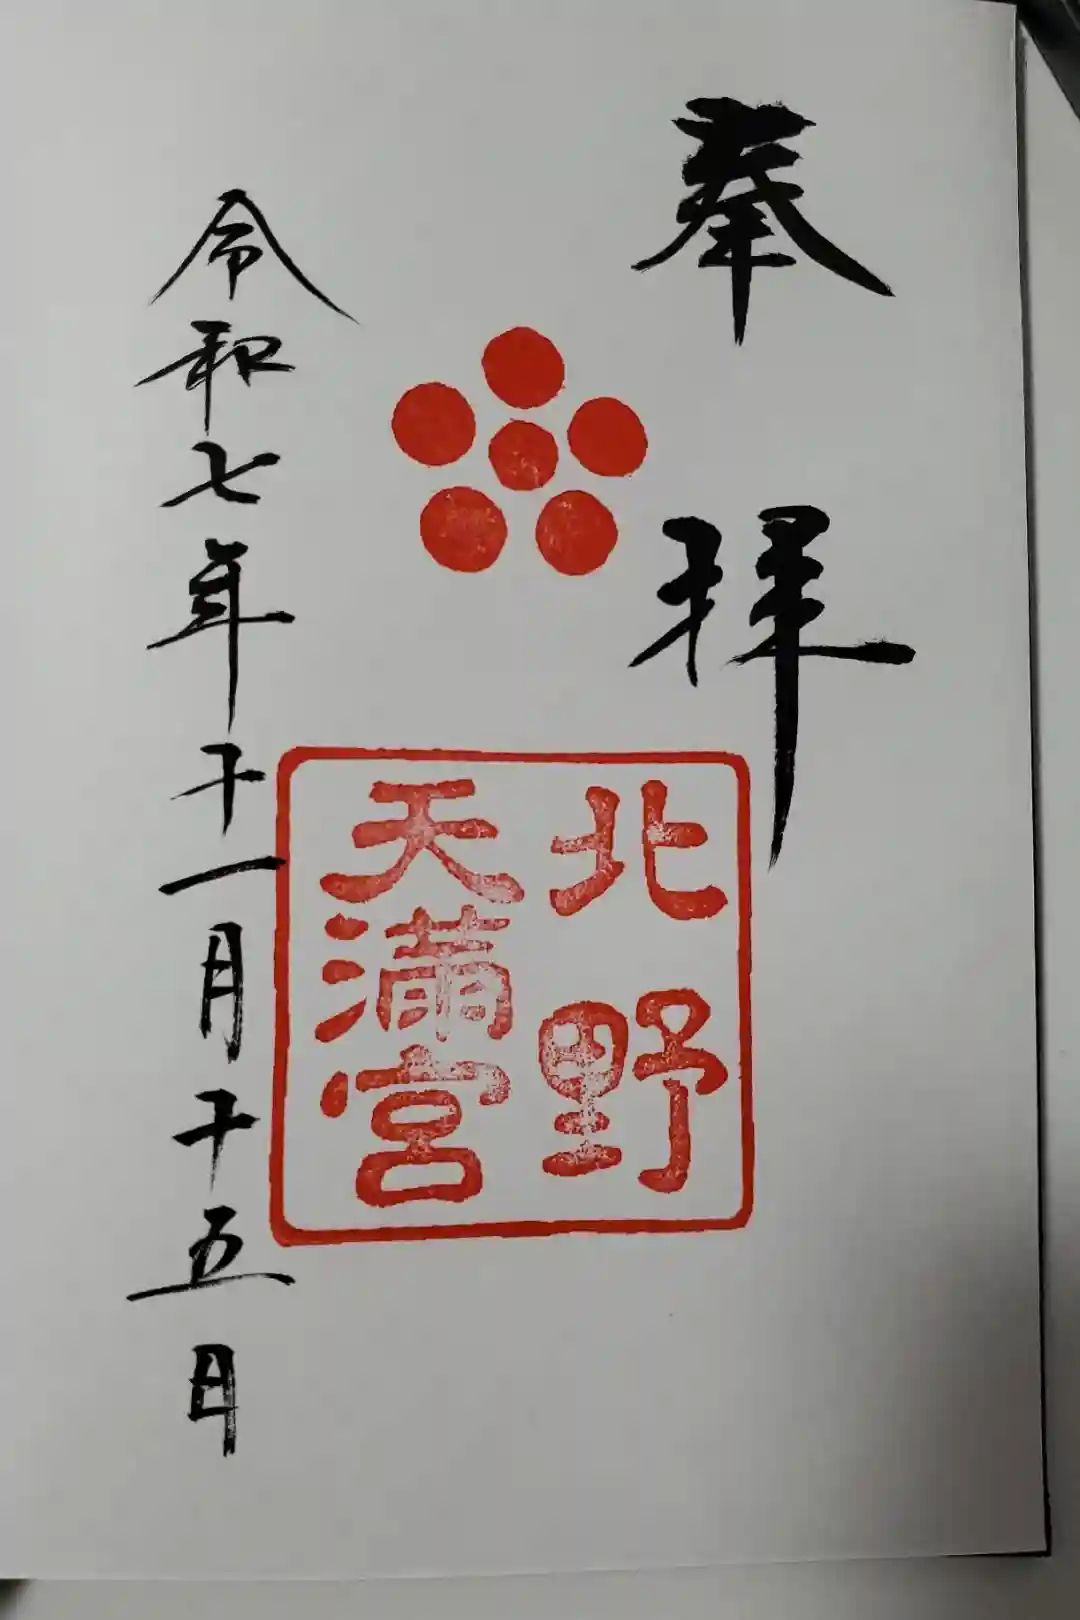 奉拝
北野
天満宮
令和七年十一月十五日